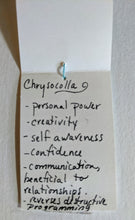 Chrysocolla 9
- personal power
- creativity
- self awareness
- confidence
- communication,
beneficial to
relationships.
- reverses destructive
programming